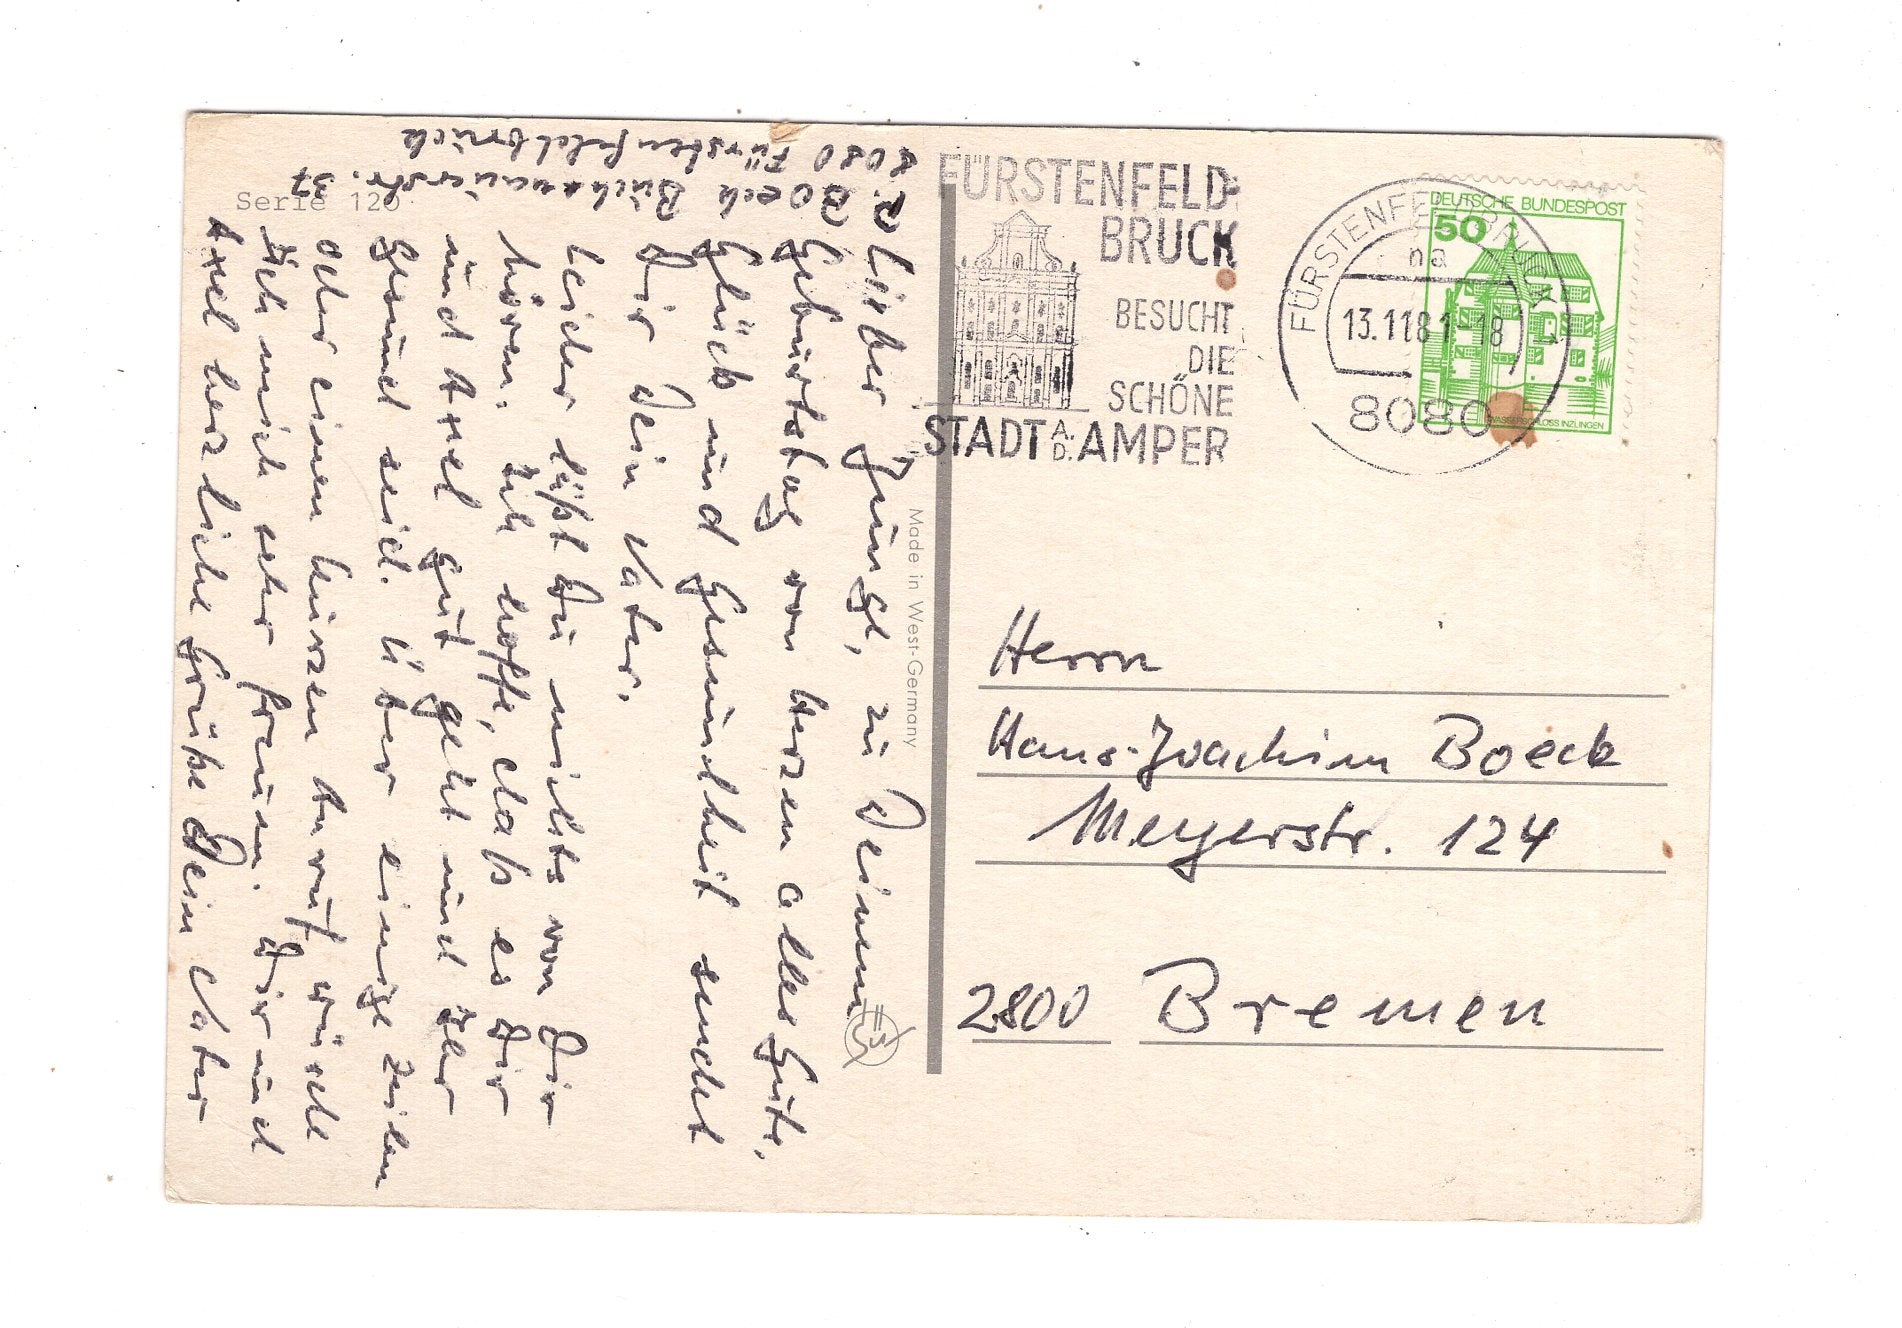 Serie 120
P. Boeck Buchenauerstr. 37
8080 Fürstenfeldbruck
Lieber Junge, zu Deinem
Geburtstag von Herzen alles Gute,
Glück und Gesundheit sendet
Dir Dein Vater.
Leider läßt Du nichts von Dir
hören. Ich hoffe, daß es Dir
und Axel gut geht und Ihr
Gesund seid. Über einige Zeilen
oder einen kurzen Anruf würde
ich mich sehr freuen. Dir und
Axel herzliche Grüße Dein Vater
Made in West-Germany
FÜRSTENFELD-
BRUCK
BESUCHT
DIE
SCHÖNE
STADT A. D. AMPER
FÜRSTENFELDBRUCK 1
na
13.11 81-18
8080
DEUTSCHE BUNDESPOST
50
WASSERSCHLOSS INZLINGEN
Herrn
Hans-Joachim Boeck
Meyerstr. 124
2800 Bremen